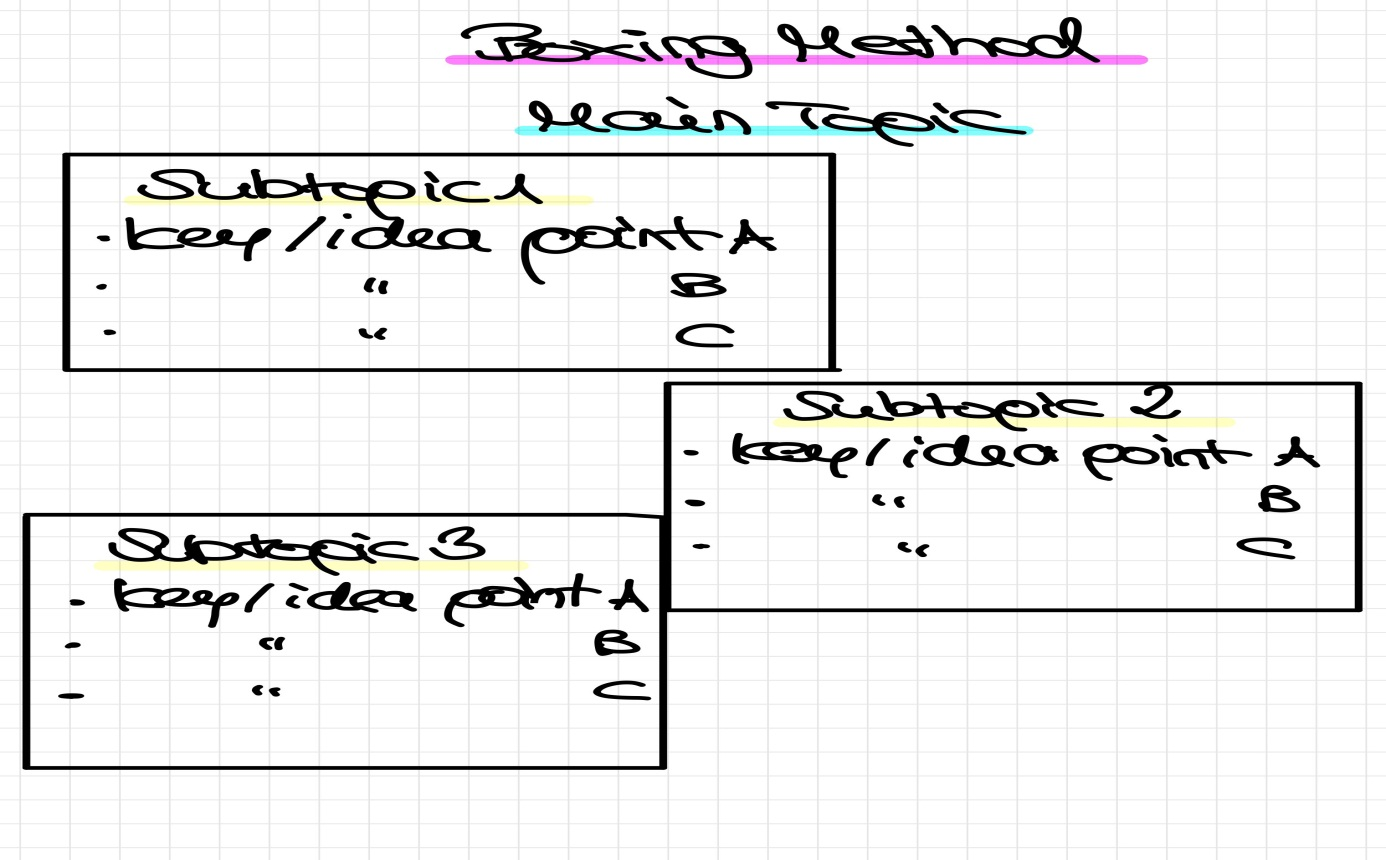 Boxing Method
Main Topic
Subtopic 1
- key/idea point A
- " B
- " C
Subtopic 2
- key/idea point A
- " B
- " C
Subtopic 3
- key/idea point A
- " B
- " C